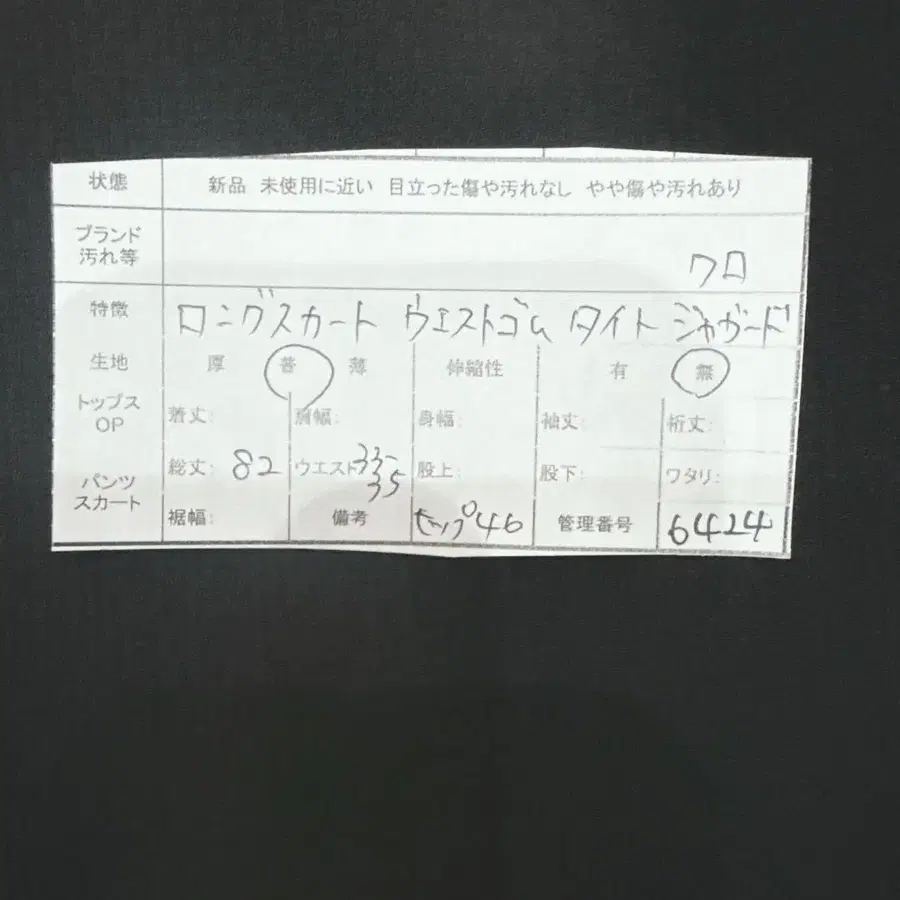 状態 新品 未使用に近い 目立った傷や汚れなし やや傷や汚れあり
ブランド
汚れ等 クロ
特徴 ロングスカート ウエストゴム タイト ジャガード
生地 厚 普 薄 伸縮性 有 無
トップス
OP 着丈: 肩幅: 身幅: 袖丈: 裄丈:
パンツ
スカート 総丈: 82 ウエスト 33-
35 股上: 股下: ワタリ:
裾幅: 備考 ヒップ46 管理番号 6424